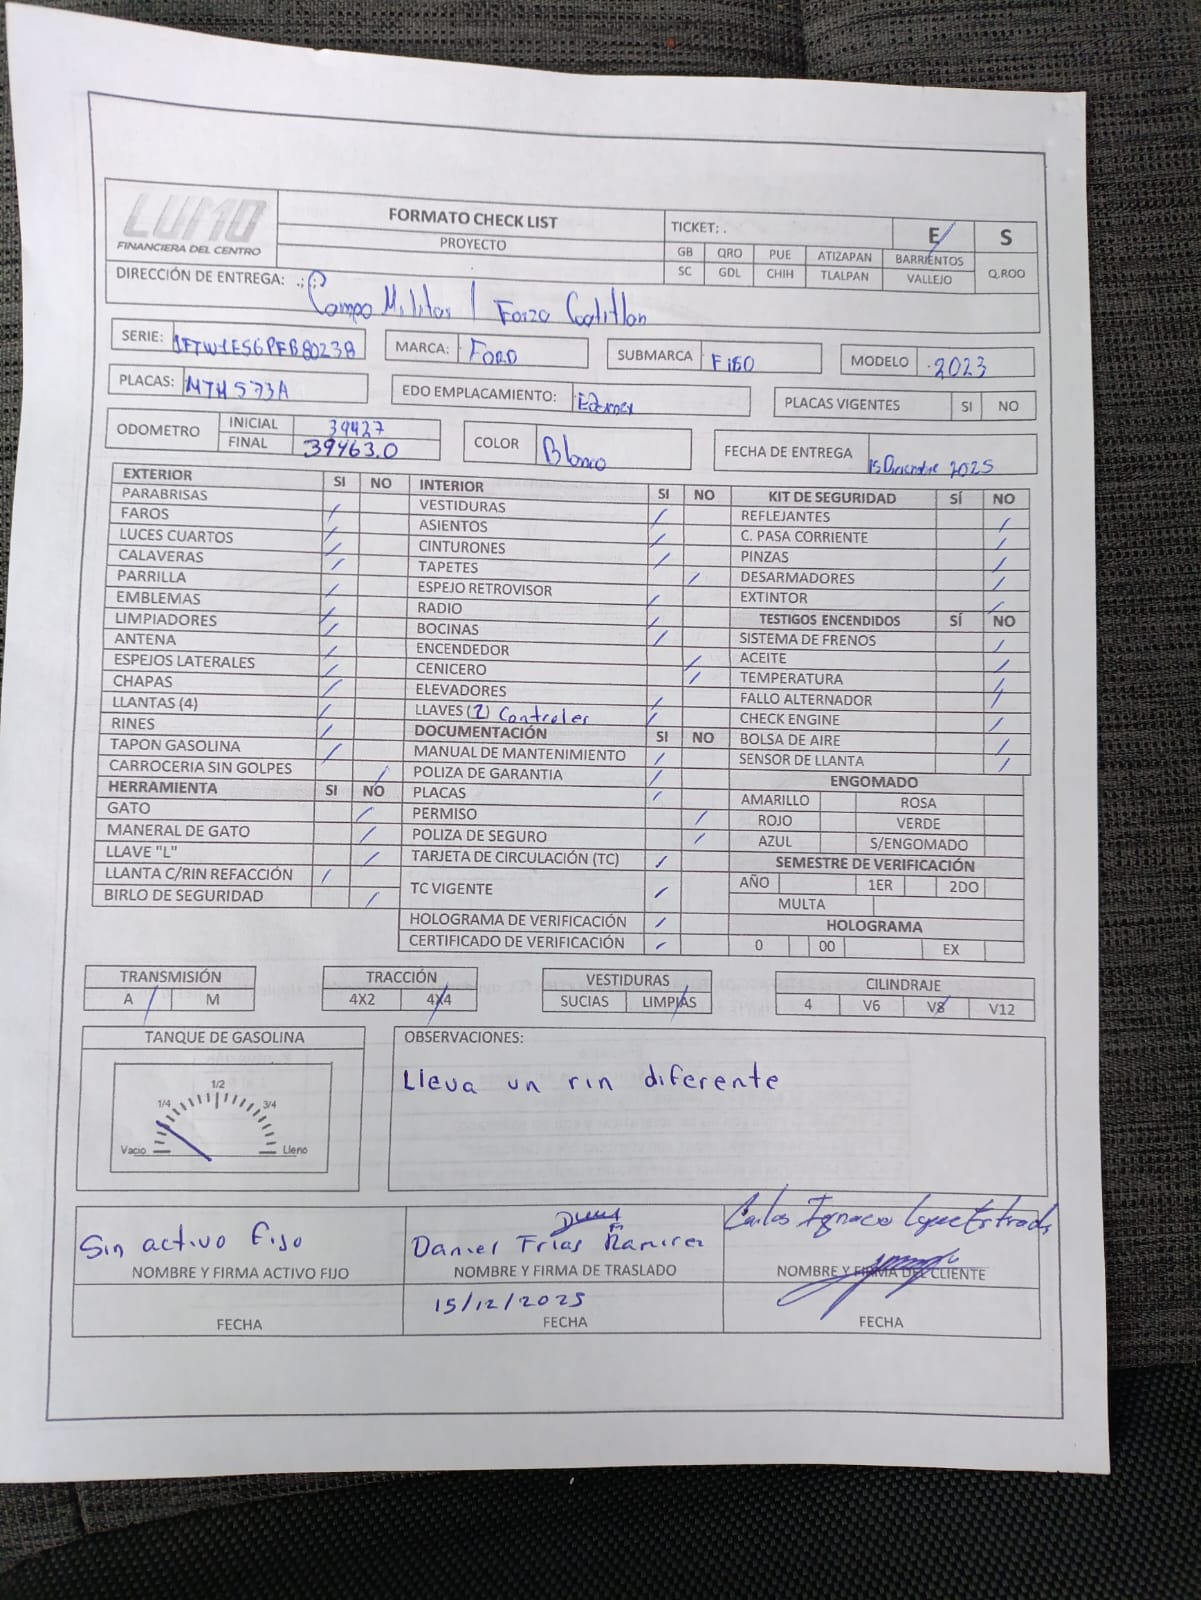 LUMO
FINANCIERA DEL CENTRO
FORMATO CHECK LIST
PROYECTO
TICKET: .
E
S
GB QRO PUE ATIZAPAN BARRIENTOS
SC GDL CHIH TLALPAN VALLEJO
Q.ROO
DIRECCIÓN DE ENTREGA: .:
Campo Militar 1 Forza Coatitlan
SERIE: 1FTW1ES6PFB80238 MARCA: FORD SUBMARCA F150 MODELO 2023
PLACAS: MTH573A EDO EMPLACAMIENTO: Edomex PLACAS VIGENTES SI NO
ODOMETRO INICIAL 39427
FINAL 39463.0
COLOR Blanco FECHA DE ENTREGA 15 Diciembre 2025
EXTERIOR SI NO
PARABRISAS
FAROS
LUCES CUARTOS
CALAVERAS
PARRILLA
EMBLEMAS
LIMPIADORES
ANTENA
ESPEJOS LATERALES
CHAPAS
LLANTAS (4)
RINES
TAPON GASOLINA
CARROCERIA SIN GOLPES
HERRAMIENTA SI NO
GATO
MANERAL DE GATO
LLAVE "L"
LLANTA C/RIN REFACCIÓN
BIRLO DE SEGURIDAD
INTERIOR SI NO
VESTIDURAS
ASIENTOS
CINTURONES
TAPETES
ESPEJO RETROVISOR
RADIO
BOCINAS
ENCENDEDOR
CENICERO
ELEVADORES
LLAVES (2) Controles
DOCUMENTACIÓN SI NO
MANUAL DE MANTENIMIENTO
POLIZA DE GARANTIA
PLACAS
PERMISO
POLIZA DE SEGURO
TARJETA DE CIRCULACIÓN (TC)
TC VIGENTE
HOLOGRAMA DE VERIFICACIÓN
CERTIFICADO DE VERIFICACIÓN
KIT DE SEGURIDAD SÍ NO
REFLEJANTES
C. PASA CORRIENTE
PINZAS
DESARMADORES
EXTINTOR
TESTIGOS ENCENDIDOS SÍ NO
SISTEMA DE FRENOS
ACEITE
TEMPERATURA
FALLO ALTERNADOR
CHECK ENGINE
BOLSA DE AIRE
SENSOR DE LLANTA
ENGOMADO
AMARILLO ROSA
ROJO VERDE
AZUL S/ENGOMADO
SEMESTRE DE VERIFICACIÓN
AÑO 1ER 2DO
MULTA
HOLOGRAMA
0 00 EX
TRANSMISIÓN
A M
TRACCIÓN
4X2 4X4
VESTIDURAS
SUCIAS LIMPIAS
CILINDRAJE
4 V6 V8 V12
TANQUE DE GASOLINA
1/2
1/4 3/4
Vacio Lleno
OBSERVACIONES:
Lleva un rin diferente
Sin activo fijo
NOMBRE Y FIRMA ACTIVO FIJO
FECHA
Daniel Frías Ramirez
NOMBRE Y FIRMA DE TRASLADO
15/12/2025
FECHA
Carlos Ignacio
NOMBRE Y FIRMA DEL CLIENTE
FECHA